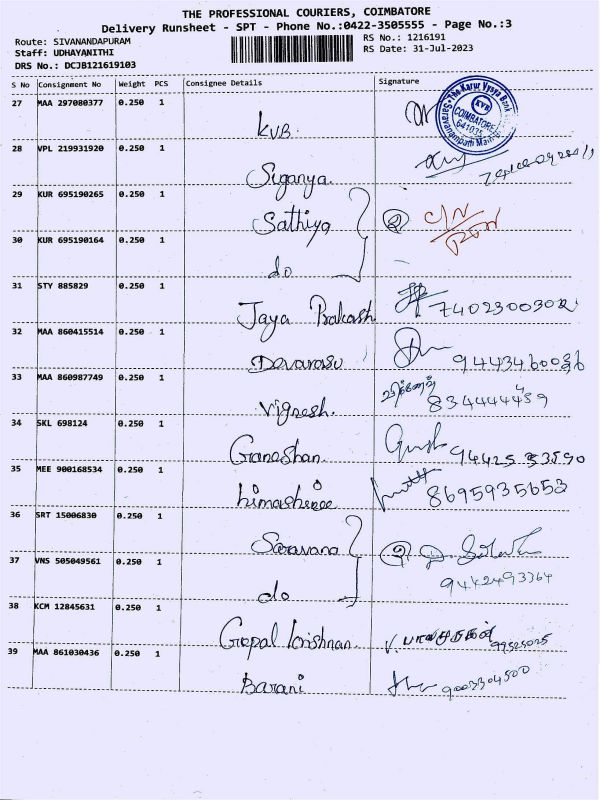 THE PROFESSIONAL COURIERS, COIMBATORE
Delivery Runsheet - SPT - Phone No.:0422-3505555 - Page No.:3
Route: SIVANANDAPURAM
RS No.: 1216191
Staff: UDHAYANITHI
RS Date: 31-Jul-2023
DRS No.: DCJB121619103
S No Consignment No Weight PCS Consignee Details Signature
27 MAA 297080377 0.250 1 KVB.
The Karur Vysya Bank
KVB
COIMBATORE
641035
28 VPL 219931920 0.250 1 Siganya.
29 KUR 695190265 0.250 1 Sathiya 2 C/N
30 KUR 695190164 0.250 1 do
31 STY 885829 0.250 1 Jaya Prakash 7402300302
32 MAA 860415514 0.250 1 Devarasu
33 MAA 860987749 0.250 1 Vignesh. விக்னேஷ்
34 SKL 698124 0.250 1 Ganeshan. 94425 33590
35 MEE 900168534 0.250 1 himashree 8695935653
36 SRT 15006830 0.250 1 Saravana 2
37 VNS 505049561 0.250 1 do 9442493364
38 KCM 12845631 0.250 1 Gopal krishnan.
39 MAA 861030436 0.250 1 Barani 9003304500